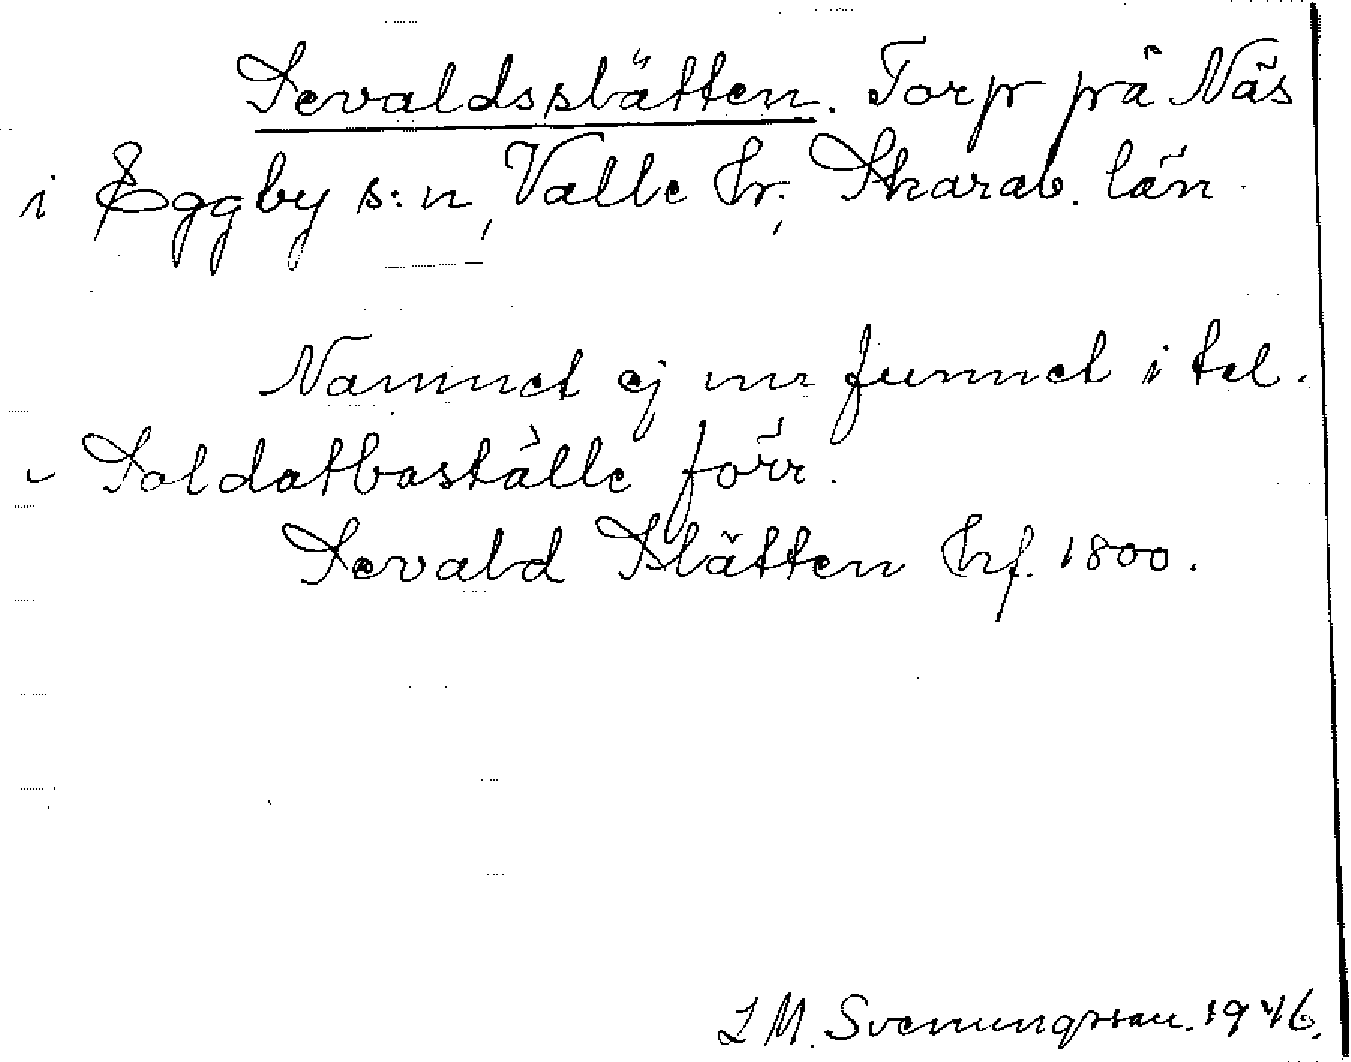 Sevaldsslätten. Torp på Näs
i Eggby s:n, Valle hr., Skarab. län.
Namnet ej nu funnet i tel.
Soldatboställe förr.
Sevald Slätten hf. 1800.
L M. Svenungsson. 1946.